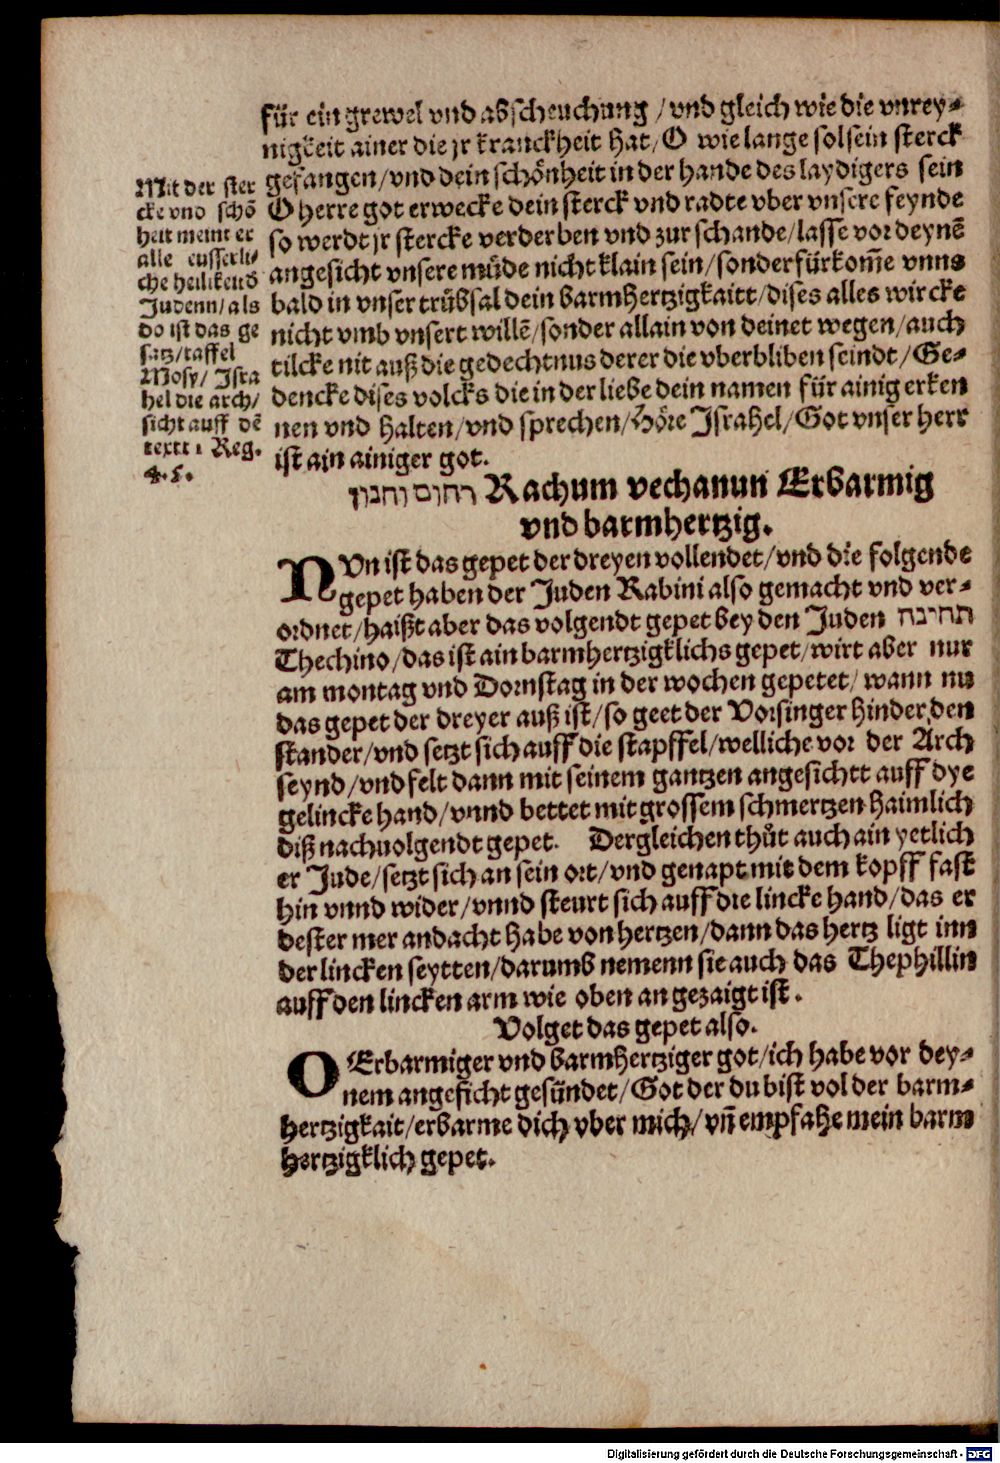 für ein grewel vnd abscheuchung / vnd gleich wie die vnrey⸗
nigkeit ainer die jr kranckheit hat/ O wie lange sol sein sterck
gefangen/vnd dein schönheit in der hande des laydigers sein
O herre got erwecke dein sterck vnd radte vber vnsere feynde
so werdt jr stercke verderben vnd zur schande/lasse vor deynē
angesicht vnsere müde nicht klain sein/sonder fürkom̄e vnns
bald in vnser trübsal dein barmhertzigkaitt/dises alles wircke
nicht vmb vnsert willē/sonder allain von deinet wegen/auch
tilcke nit auß die gedechtnus derer die vberbliben seindt/Ge⸗
dencke dises volcks die in der liebe dein namen für ainig erken
nen vnd halten/vnd sprechen/Höre Israhel/Got vnser herr
ist ain ainiger got.
Mit der ster
cke vnd schö
heit meint er
alle eusserli⸗
che heilikeitō
Judenn/als
do ist das ge
satz/taffel
Mosy/ Isra
hel die arch/
sicht auff dē
textt 1 Reg.
4. 5.
רחום וחנון Rachum vechanun Erbarmig
vnd barmhertzig.
NVn ist das gepet der dreyen vollendet/vnd die folgende
gepet haben der Juden Rabini also gemacht vnd ver⸗
ordnet/haißt aber das volgendt gepet bey den Juden תחינה
Thechino/das ist ain barmhertzigklichs gepet/wirt aber nur
am montag vnd Dornstag in der wochen gepetet/ wann nu
das gepet der dreyer auß ist/so geet der Vorsinger hinder den
stander/vnd setzt sich auff die stapffel/welliche vor der Arch
seynd/vnd felt dann mit seinem gantzen angesichtt auff dye
gelincke hand/vnnd bettet mit grossem schmertzen haimlich
diß nachuolgendt gepet. Dergleichen thůt auch ain yetlich
er Jude/setzt sich an sein ort/vnd genapt mit dem kopff fast
hin vnnd wider/vnnd steurt sich auff die lincke hand/das er
dester mer andacht habe von hertzen/dann das hertz ligt inn
der lincken seytten/darumb nemenn sie auch das Thephillin
auff den lincken arm wie oben angezaigt ist.
Volget das gepet also.
O Erbarmiger vnd barmhertziger got/ich habe vor dey⸗
nem angesicht gesündet/Got der du bist vol der barm⸗
hertzigkait/erbarme dich vber mich/vn̄ empfahe mein barm
hertzigklich gepet.
Digitalisierung gefördert durch die Deutsche Forschungsgemeinschaft - DFG